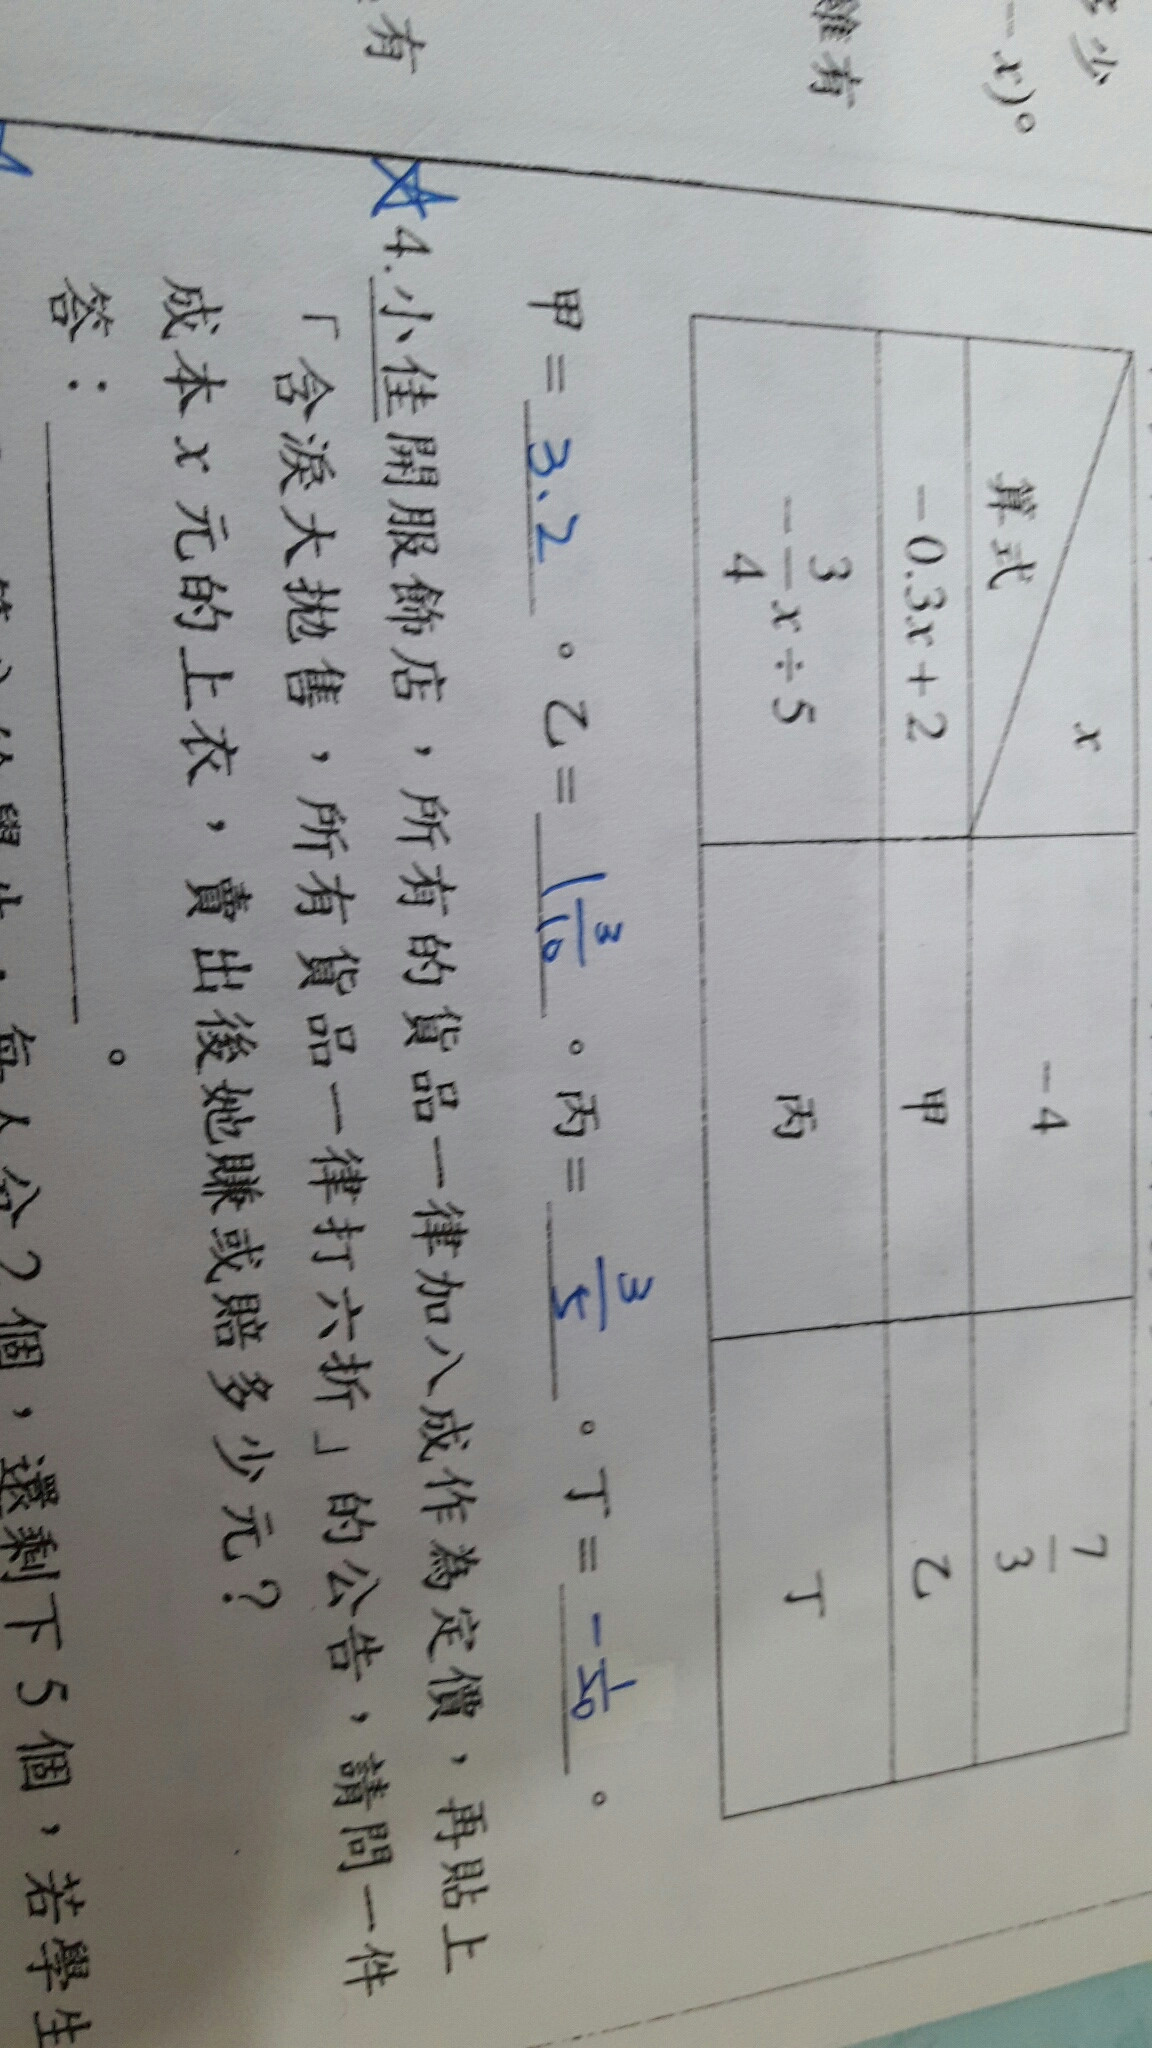 多少
- x)。
雖有
有
x
算式
-4
7/3
-0.3x+2
甲
乙
-3/4x÷5
丙
丁
甲=3.2。乙=1 3/10。丙=3/5。丁=-1/20。
4.小佳開服飾店，所有的貨品一律加八成作為定價，再貼上
「含淚大拋售，所有貨品一律打六折」的公告，請問一件
成本x元的上衣，賣出後她賺或賠多少元？
答：。
每人分2個，還剩下5個，若學生